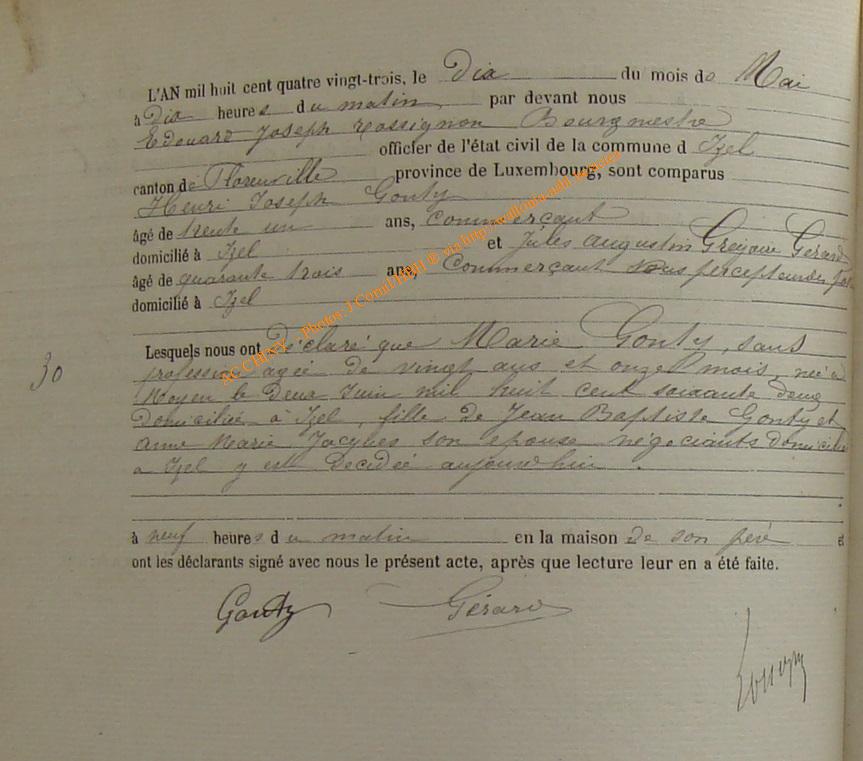 L'AN mil huit cent quatre vingt-trois, le Dix du mois de Mai
à Dix heures du matin par devant nous
Edouard Joseph Rossignon Bourgmestre
officier de l'état civil de la commune d Izel
canton de Florenville province de Luxembourg, sont comparus
Henri Joseph Gonty
âgé de trente un ans, Commerçant
domicilié à Izel et Jules Augustin Grégoire Gérard
âgé de quarante trois ans, Commerçant sous percepteur des
domicilié à Izel
Lesquels nous ont Déclaré que Marie Gonty, sans
profession agée de vingt ans et onze mois, née à
30
Moyen le Deux Juin mil huit cent soixante deux
Domiciliée à Izel, fille de Jean Baptiste Gonty et
Anne Marie Jacques son epouse négociants domiciliés
a Izel y est Décédée aujourdhui.
à neuf heures du matin en la maison De son père et
ont les déclarants signé avec nous le présent acte, après que lecture leur en a été faite.
Gonty Gérard